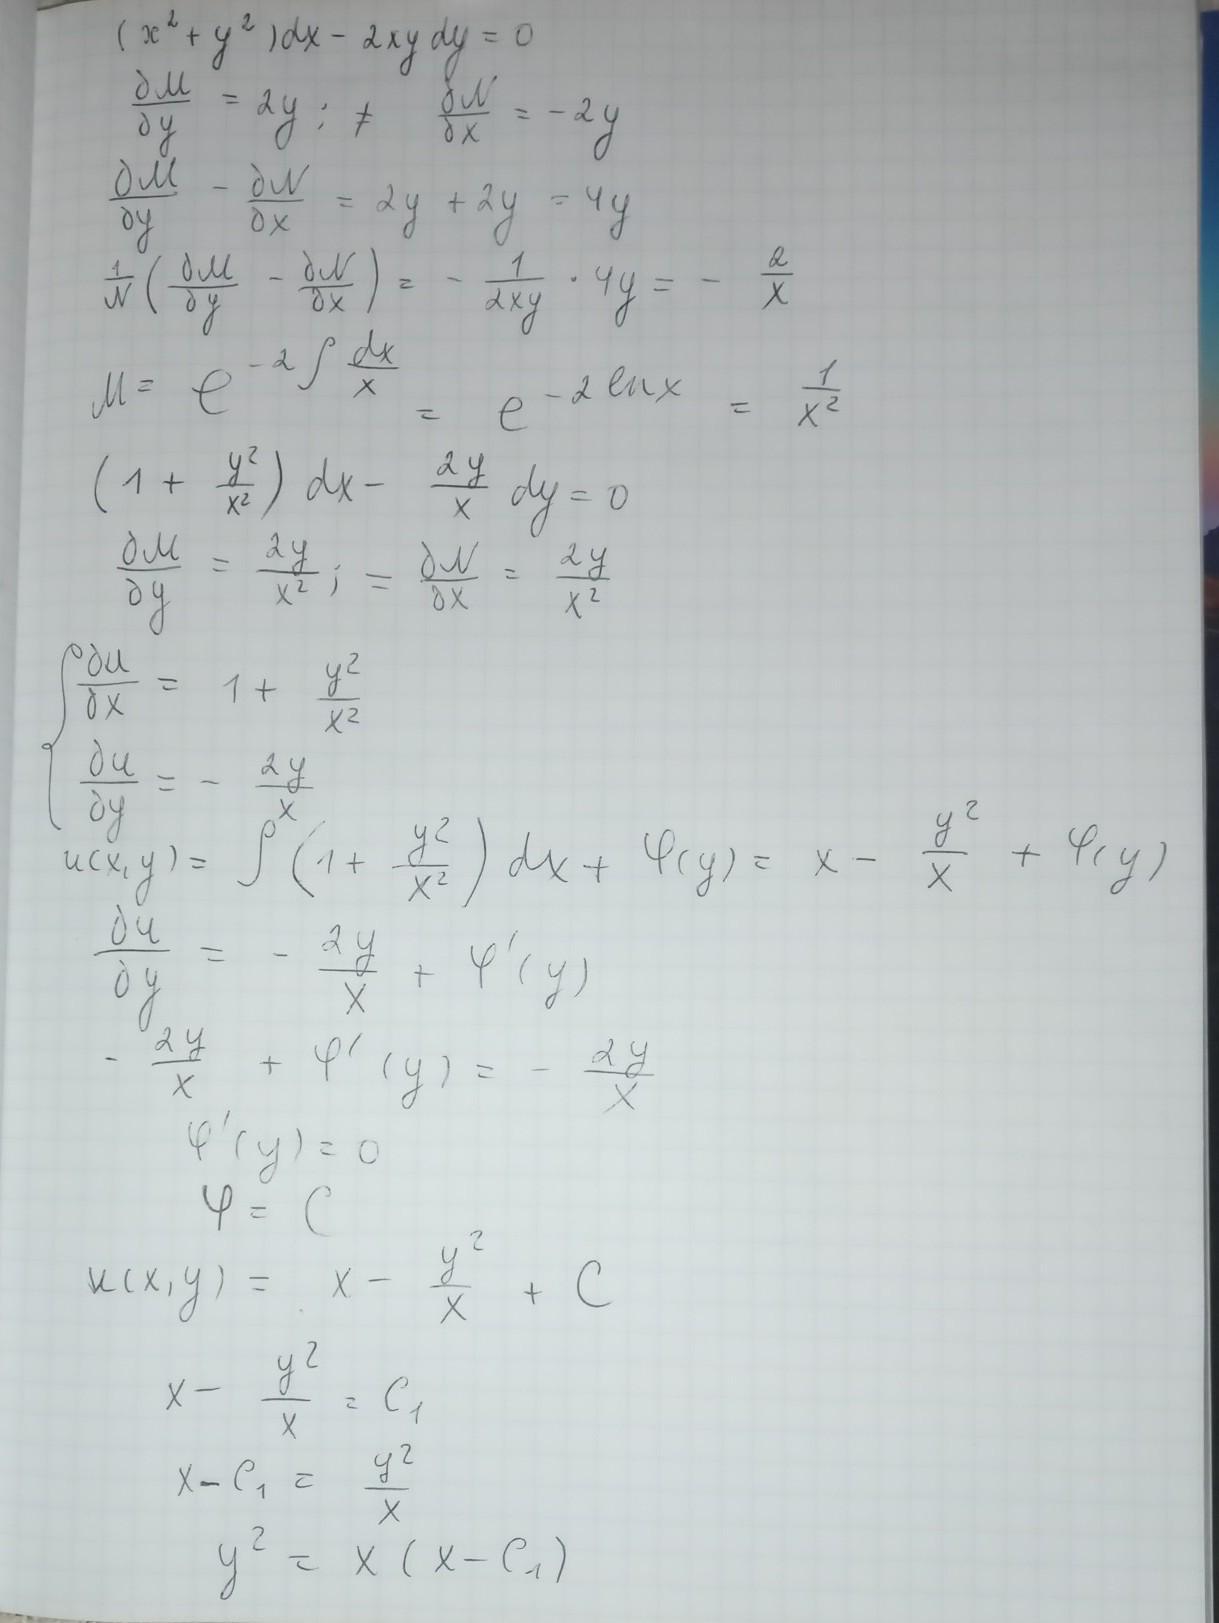 (x² + y²)dx - 2xy dy = 0
∂M/∂y = 2y ; ≠ ∂N/∂x = -2y
∂M/∂y - ∂N/∂x = 2y + 2y = 4y
1/N (∂M/∂y - ∂N/∂x) = - 1/2xy · 4y = - 2/x
M = e^(-2∫dx/x) = e^(-2 ln x) = 1/x²
(1 + y²/x²) dx - 2y/x dy = 0
∂M/∂y = 2y/x² ; = ∂N/∂x = 2y/x²
{ ∂u/∂x = 1 + y²/x²
∂u/∂y = - 2y/x
u(x,y) = ∫(1 + y²/x²) dx + φ(y) = x - y²/x + φ(y)
∂u/∂y = - 2y/x + φ'(y)
- 2y/x + φ'(y) = - 2y/x
φ'(y) = 0
φ = C
u(x,y) = x - y²/x + C
x - y²/x = C₁
x - C₁ = y²/x
y² = x(x - C₁)